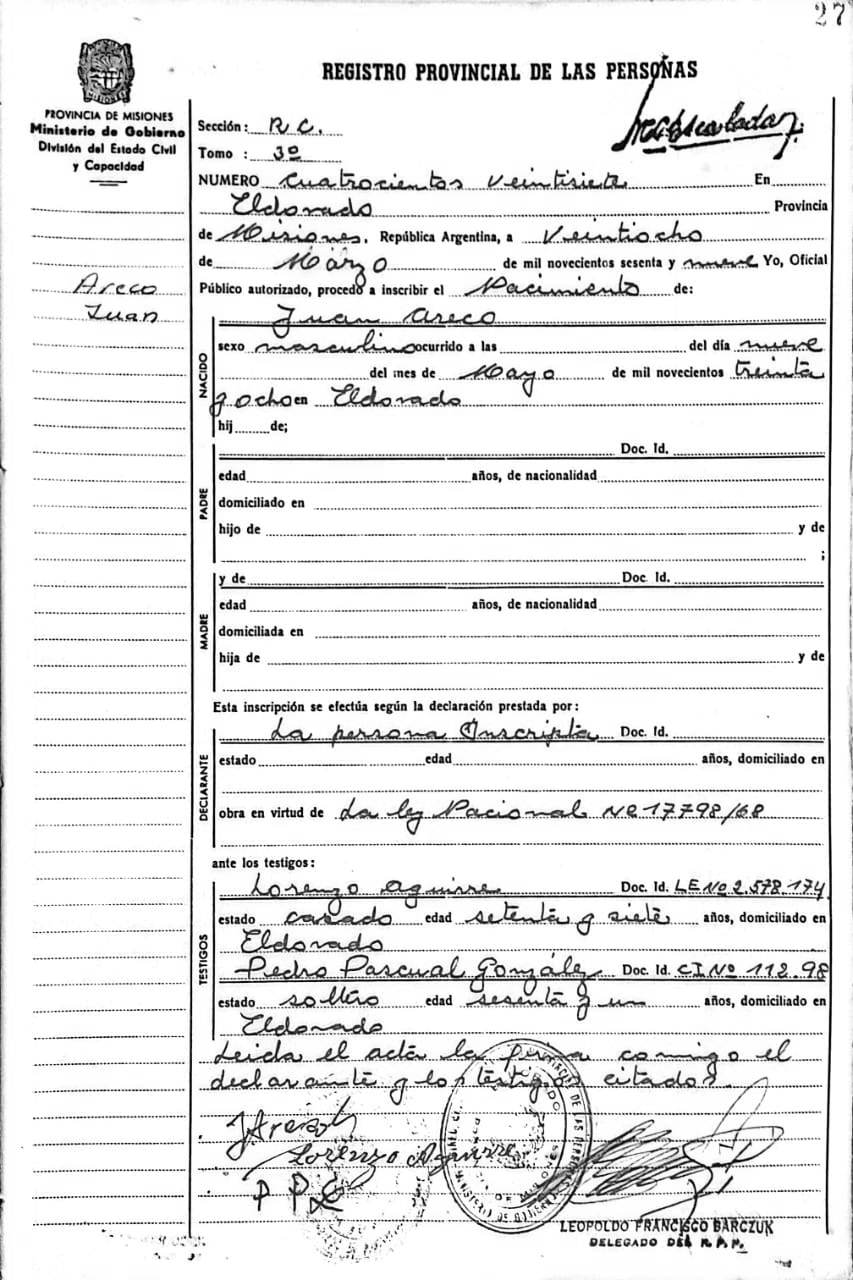 27
REGISTRO PROVINCIAL DE LAS PERSONAS
PROVINCIA DE MISIONES
Ministerio de Gobierno
División del Estado Civil
y Capacidad
Sección: R C.
Tomo : 3º
NUMERO Cuatrocientos Veintisiete En
Eldorado Provincia
de Misiones, República Argentina, a Veintiocho
de Marzo de mil novecientos sesenta y nueve Yo, Oficial
Público autorizado, procedo a inscribir el Nacimiento de:
Areco
Juan
NACIDO
Juan Areco
sexo masculino ocurrido a las del día nueve
del mes de Mayo de mil novecientos treinta
y ocho en Eldorado
hij de;
PADRE
Doc. Id.
edad años, de nacionalidad
domiciliado en
hijo de y de
;
MADRE
y de Doc. Id.
edad años, de nacionalidad
domiciliada en
hija de y de
Esta inscripción se efectúa según la declaración prestada por:
DECLARANTE
La persona Inscripta Doc. Id.
estado edad años, domiciliado en
obra en virtud de La ley Nacional Nº 17798/68
ante los testigos:
TESTIGOS
Lorenzo Aguirre Doc. Id. LE Nº 2.578.174
estado casado edad setenta y siete años, domiciliado en
Eldorado
Pedro Pascual González Doc. Id. CI Nº 112.98
estado soltero edad sesenta y un años, domiciliado en
Eldorado
Leida el acta la firma comigo el
declarante y los testigos citados.
Lorenzo Aguirre
LEOPOLDO FRANCISCO BARCZUK
DELEGADO DEL R.P.P.